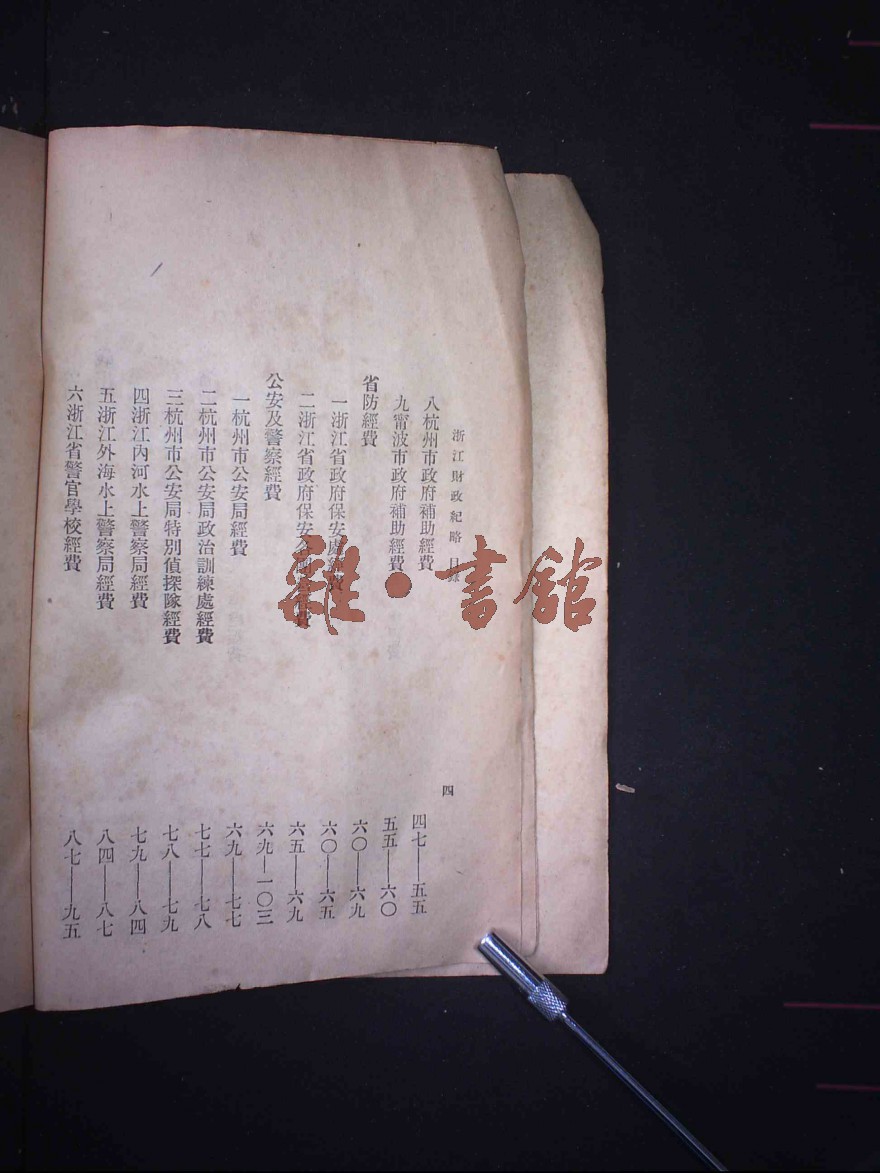 浙江財政紀略 目錄 四
八杭州市政府補助經費 四七——五五
九甯波市政府補助經費 五五——六〇
省防經費 六〇——六九
一浙江省政府保安處經費 六〇——六五
二浙江省政府保安 費 六五——六九
公安及警察經費 六九—一〇三
一杭州市公安局經費 六九——七七
二杭州市公安局政治訓練處經費 七七——七八
三杭州市公安局特別偵探隊經費 七八——七九
四浙江內河水上警察局經費 七九——八四
五浙江外海水上警察局經費 八四——八七
六浙江省警官學校經費 八七——九五
雜·書館